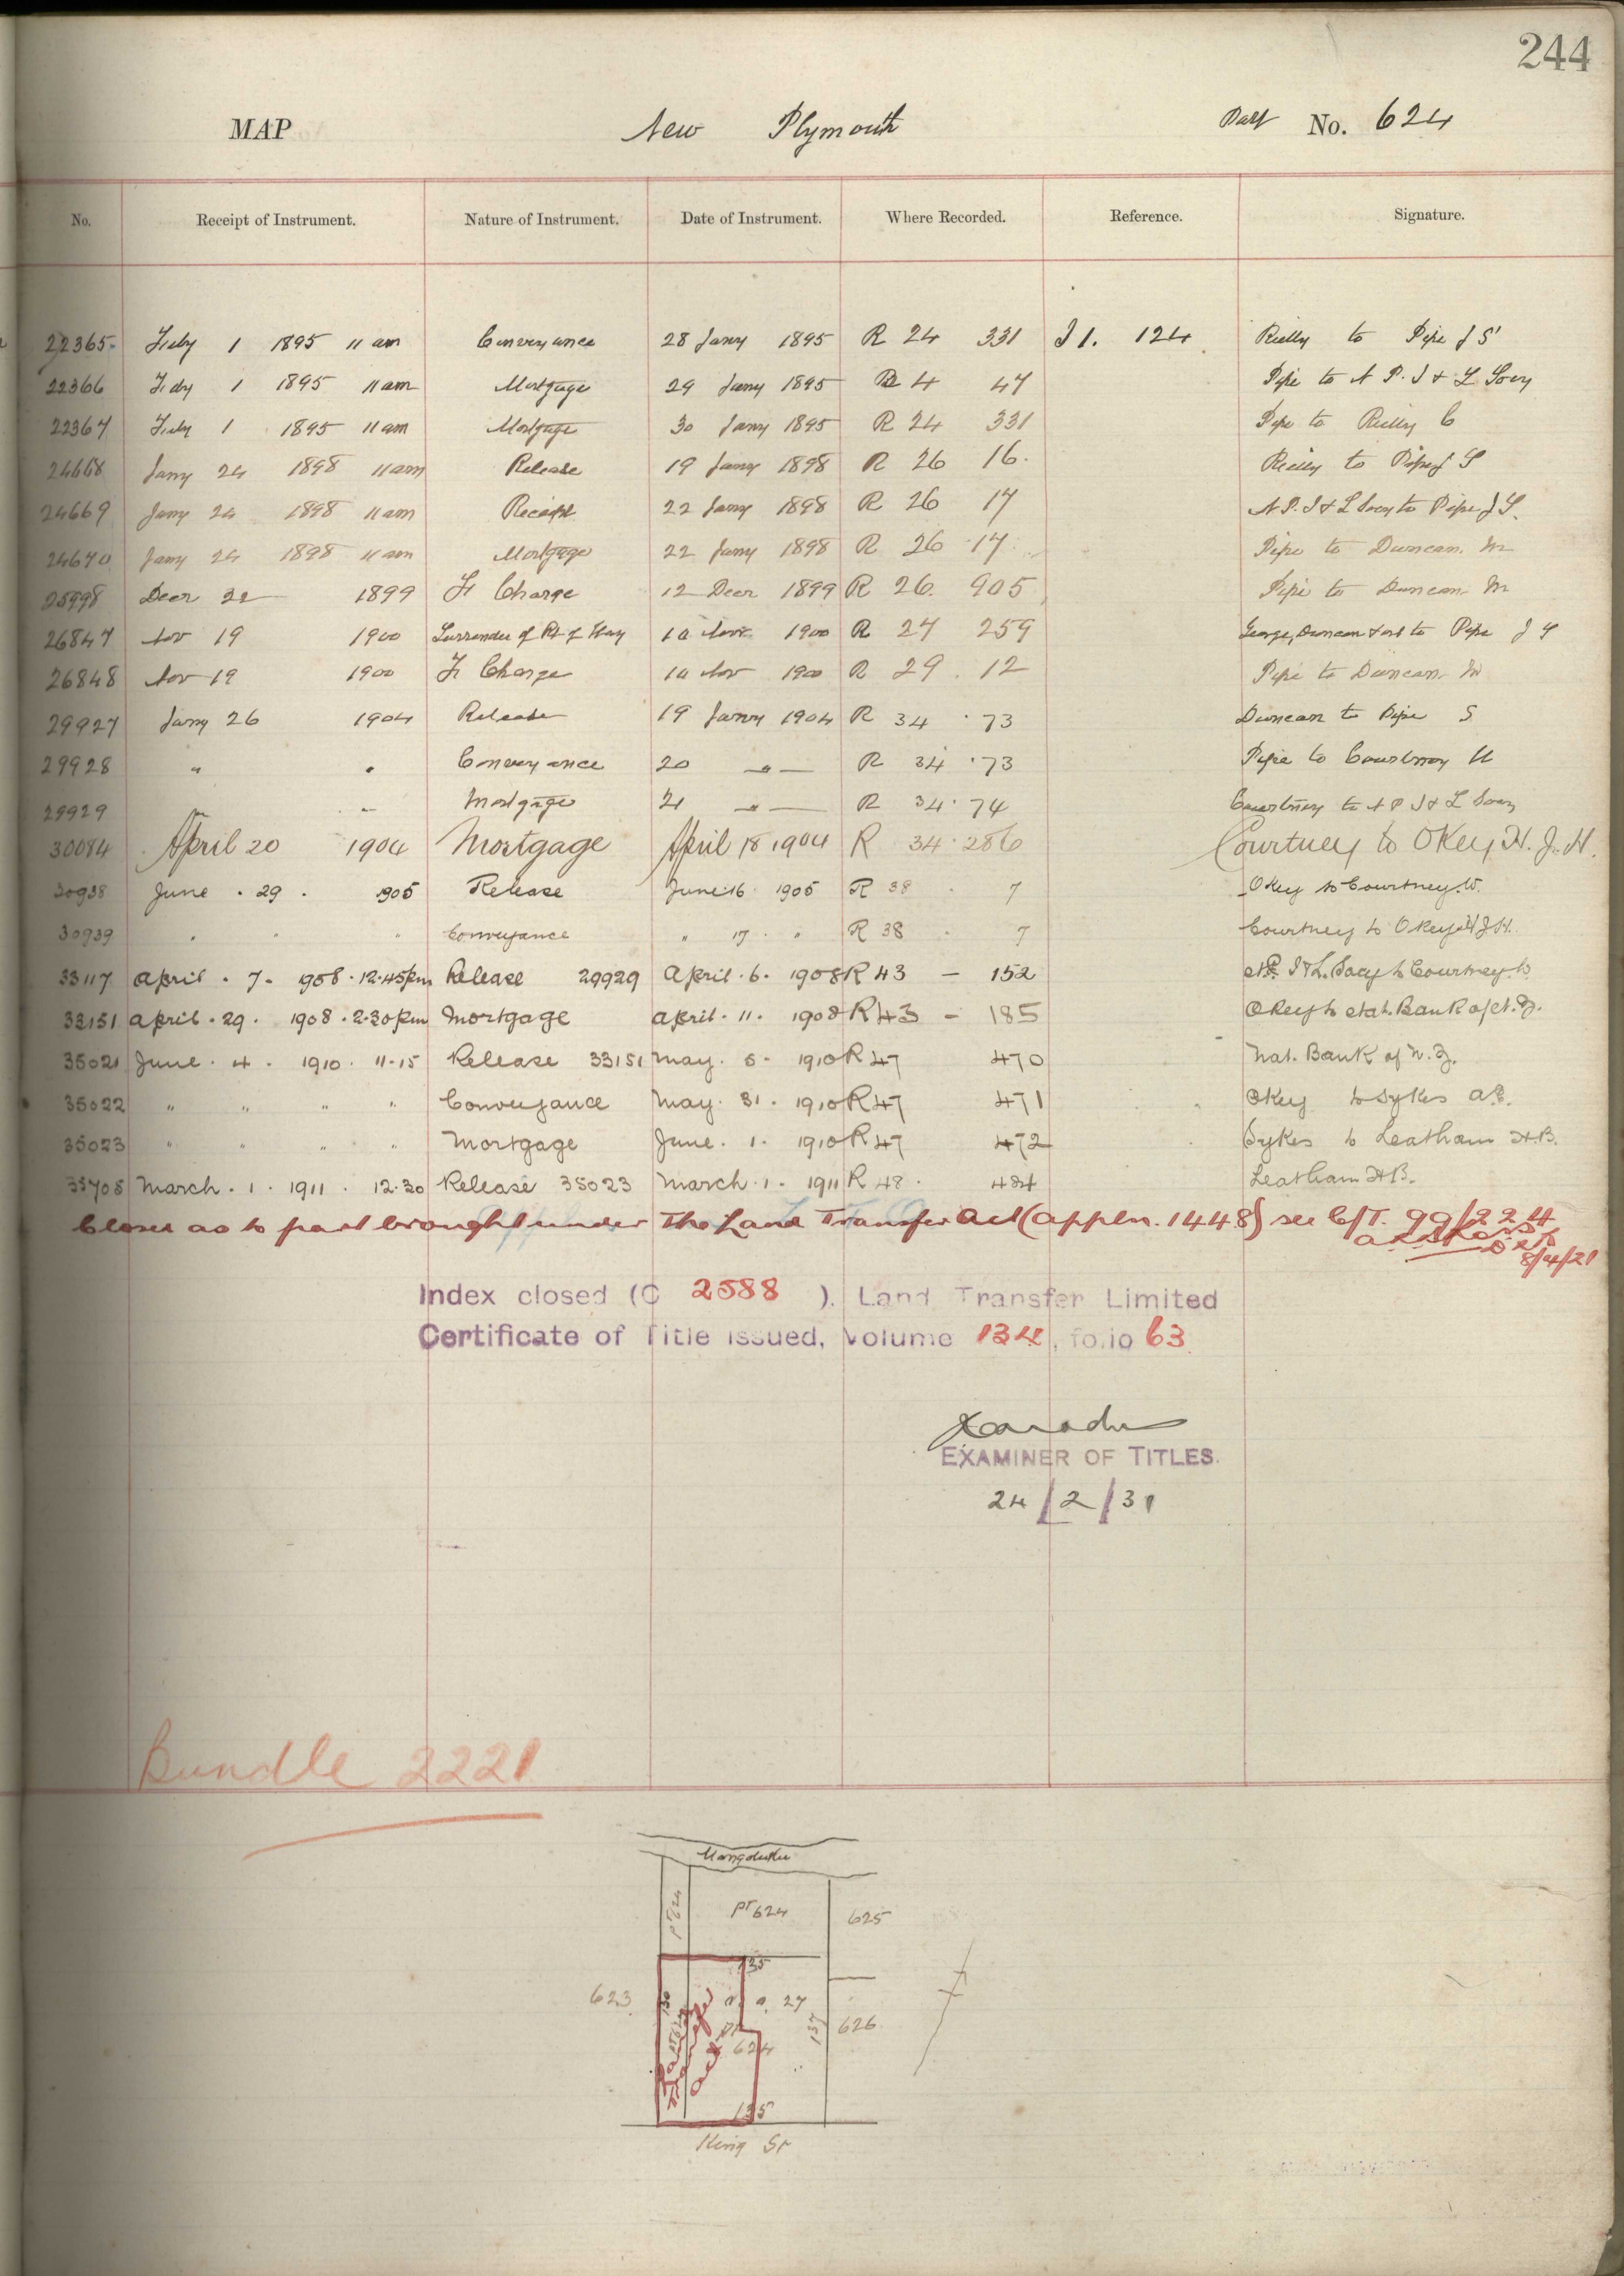 244
MAP New Plymouth Part No. 624
No. Receipt of Instrument. Nature of Instrument. Date of Instrument. Where Recorded. Reference. Signature.
22365 Feby 1 1895 11 am Conveyance 28 Jany 1895 R 24 331 I 1. 124 Reilly to Pipe J S
22366 Feby 1 1895 11 am Mortgage 29 Jany 1895 47 Pipe to N P. I & L Socy
22367 Feby 1 1895 11 am Mortgage 30 Jany 1895 R 24 331 Pipe to Reilly C
24668 Jany 24 1898 11 am Release 19 Jany 1898 R 26 16. Reilly to Pipe J S
24669 Jany 24 1898 11 am Receipt 22 Jany 1898 R 26 17 N P. I & L Socy to Pipe J S.
24670 Jany 24 1898 11 am Mortgage 22 Jany 1898 R 26 17 Pipe to Duncan. M
25998 Decr 22 1899 Fr Charge 12 Decr 1899 R 26. 905 Pipe to Duncan M
26847 Nov 19 1900 Surrender of Rt of Way 10 Nov 1900 R 27 259 George, Duncan & ors to Pipe J S
26848 Nov 19 1900 Fr Charge 10 Nov 1900 R 29. 12 Pipe to Duncan. M
29927 Jany 26 1904 Release 19 Janry 1904 R 34 · 73 Duncan to Pipe S
29928 " " Conveyance 20 —"— R 34 · 73 Pipe to Courtney W
29929 " " Mortgage 21 —"— R 34 · 74 Courtney to N P I & L Socy
30084 April 20 1904 Mortgage April 18 1904 R 34 · 286 Courtney to OKey, H. J. H.
30938 June . 29 . 1905 Release June 16 1905 R 38 . 7 OKey to Courtney. W.
30939 " " " Conveyance " 17 . " R 38 . 7 Courtney to OKey H J H.
33117 April . 7 . 1908 . 12.45 pm Release 29929 April . 6 . 1908 R 43 – 152 N.P. I & L. Socy to Courtney. W.
33151 April . 29 . 1908 . 2.30 pm Mortgage April . 11 . 1908 R 43 – 185 OKey to Nat. Bank of N. Z.
35021 June . 4 . 1910 . 11.15 Release 33151 May . 5 . 1910 R 47 470 Nat. Bank of N. Z.
35022 " " " " Conveyance May . 31 . 1910 R 47 471 OKey to Sykes A.E.
35023 " " " " Mortgage June . 1 . 1910 R 47 472 Sykes to Leatham H.B.
35705 March . 1 . 1911 . 12.30 Release 35023 March . 1 . 1911 R 48 . 484 Leatham H.B.
Closed as to part brought under The Land Transfer Act (Appln. 1448) see C/T. 99/224
8/4/21
Index closed (C 2588 ). Land Transfer Limited
Certificate of Title issued, Volume 134, folio 63
EXAMINER OF TITLES.
24/2/31
Bundle 2221
Mangotuku
pt 624
pt 624
625
135
623
130
27
137
626
pt
624
135
King St